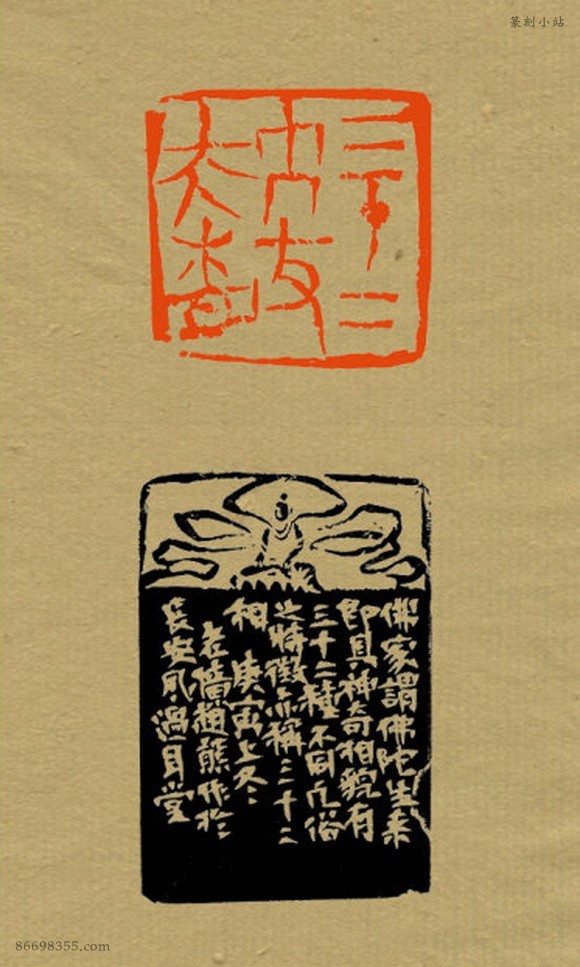 篆刻小站
三十二
友
大
佛家謂佛陀生来
即具神奇相貌有
三十二種不同凡俗
之特徵亦稱三十二
相 庚寅上冬
趙熊作於
長安風過耳堂
86698355.com